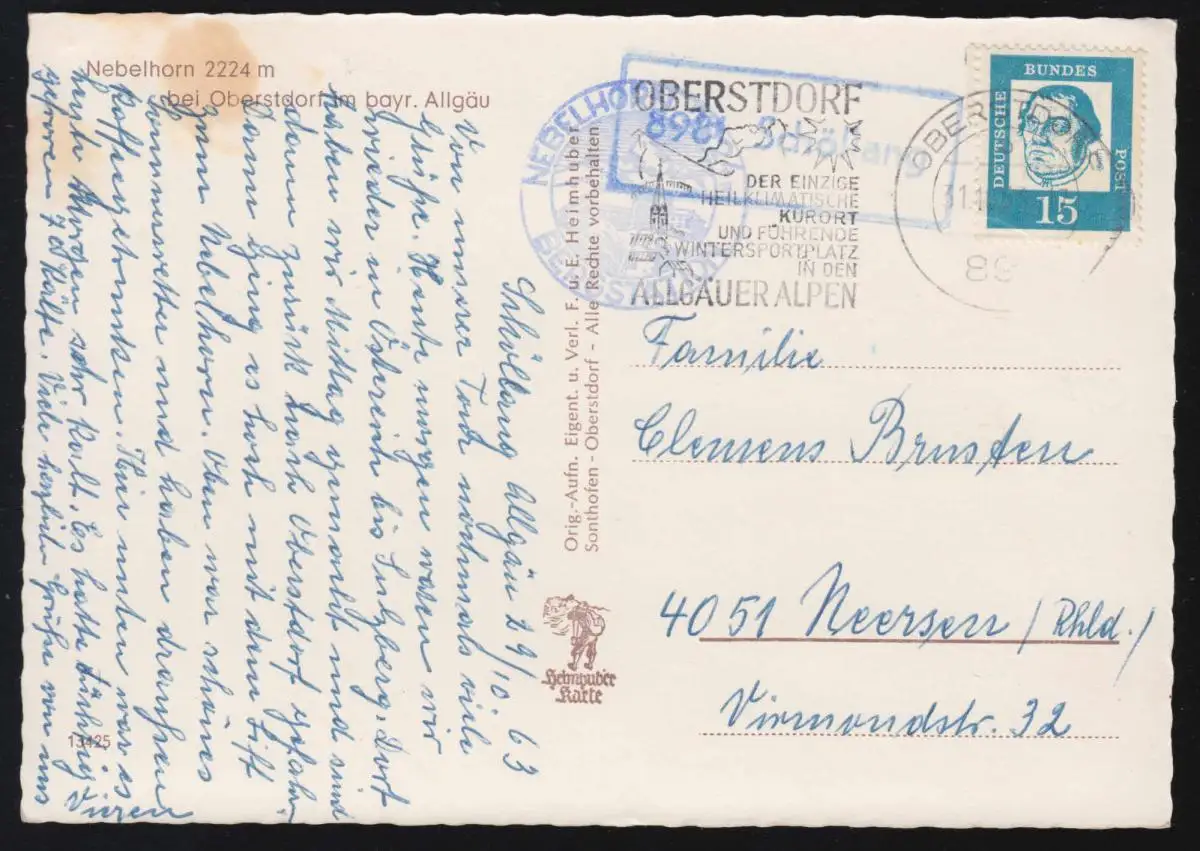 Nebelhorn 2224 m
bei Oberstdorf im bayr. Allgäu
Schöllang Allgäu 29/10 63
Von unserer Tour nochmals viele
Grüße. Heute morgen waren wir
wieder in Österreich bis Sulzberg. Dort
haben wir Mittag gemacht und sind
dann zurück nach Oberstdorf gefahr-
Dann ging es hoch mit dem Lift
zum Nebelhorn. Oben war schönes
Sonnenwetter und haben draußen
Kaffeegetrunken. Hier unten war es
heute Morgen sehr kalt. Es hatte tüchtig
gefroren 7° Kälte. Viele herzliche Grüße von uns
Vieren
13425
Orig.-Aufn. Eigent. u. Verl. F. u. E. Heimhuber
Sonthofen - Oberstdorf - Alle Rechte vorbehalten
Heimhuber
Karte
NEBELHORN
8961 Schöllang
OBERSTDORF
DER EINZIGE
HEILKLIMATISCHE
KURORT
UND FÜHRENDE
WINTERSPORTPLATZ
IN DEN
ALLGÄUER ALPEN
OBERSTDORF
31.10
89
DEUTSCHE
BUNDES
POST
15
Familie
Clemens Brusten
4051 Neersen /Rhld./
Virmondstr. 32